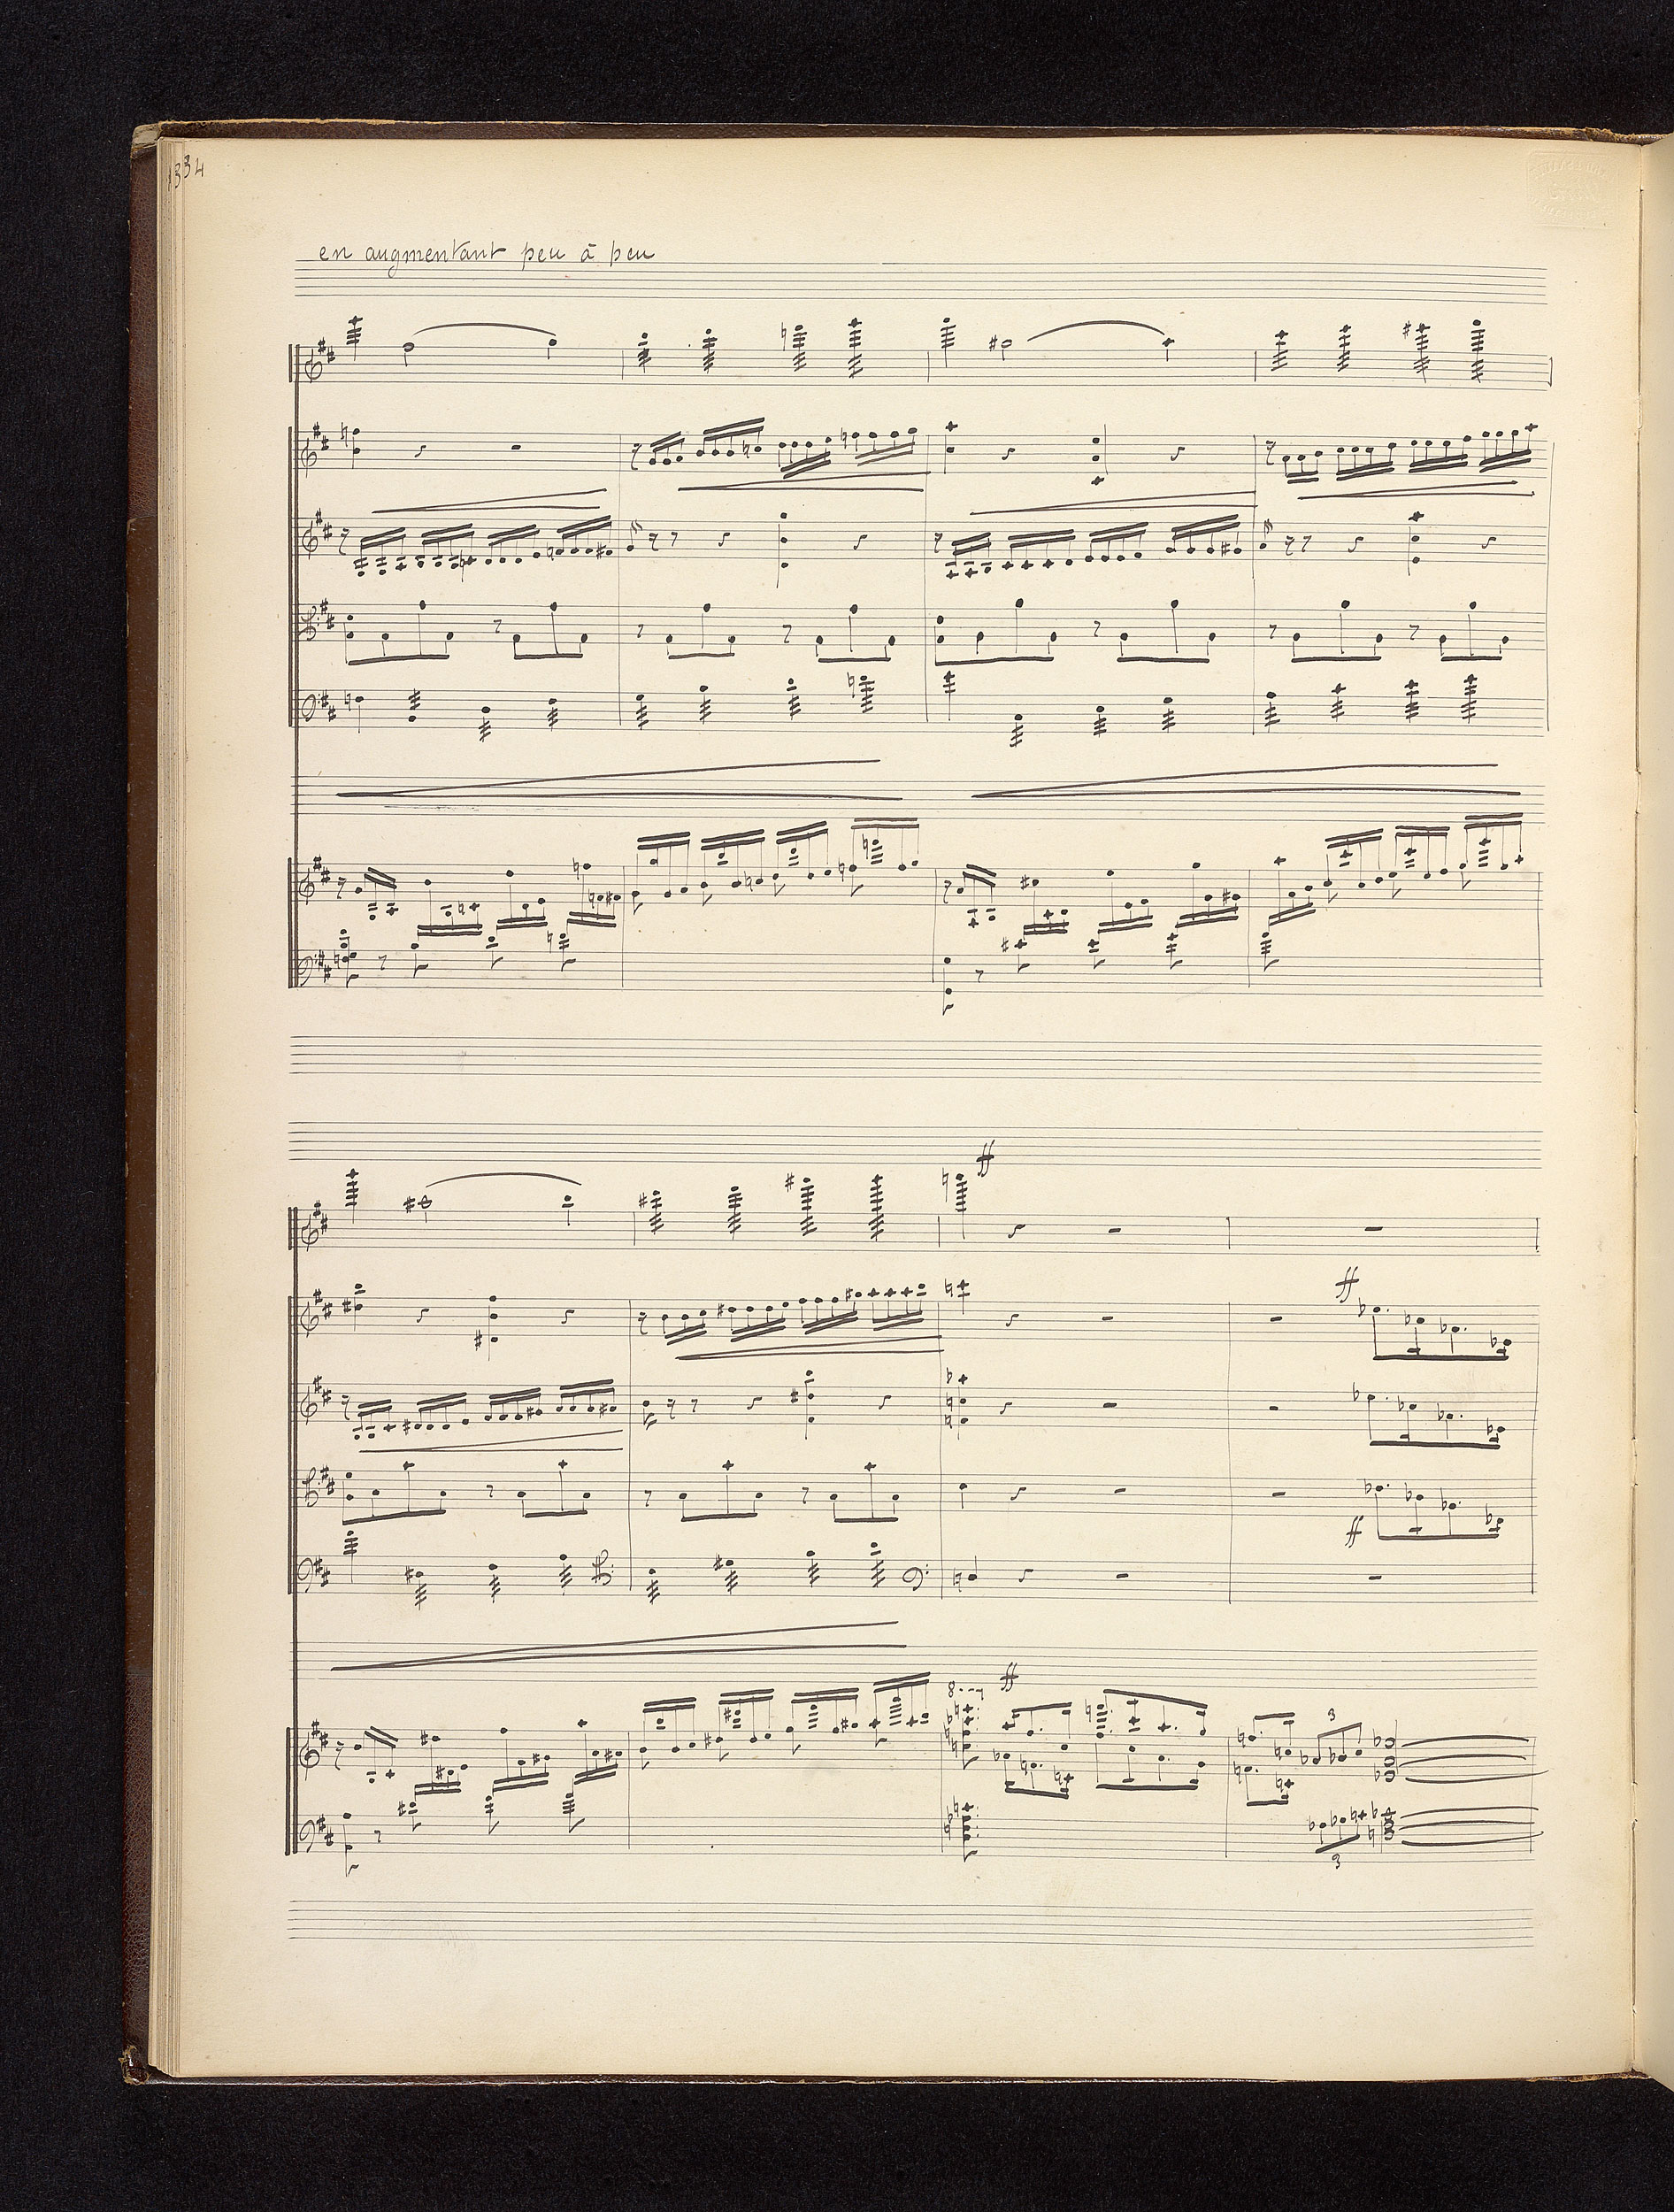 134
en augmentant peu à peu
ff
ff
ff
ff
8
3
3